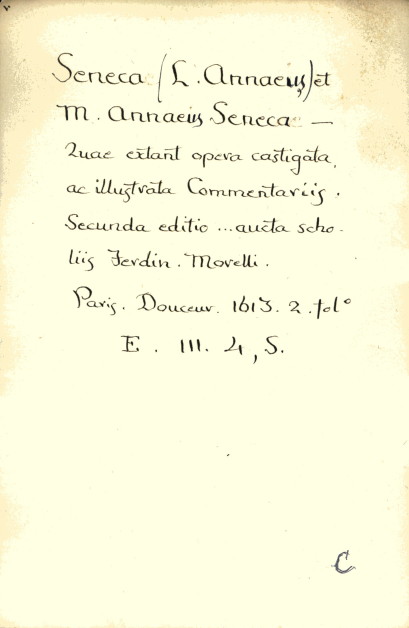 Seneca (L. Annaeus) et
M. Annaeus Seneca —
Quae extant opera castigata,
ac illustrata Commentariis.
Secunda editio ... aucta scho-
liis Ferdin. Morelli.
Paris. Douceur. 1613. 2. fol°
E. III. 4, 5.
C